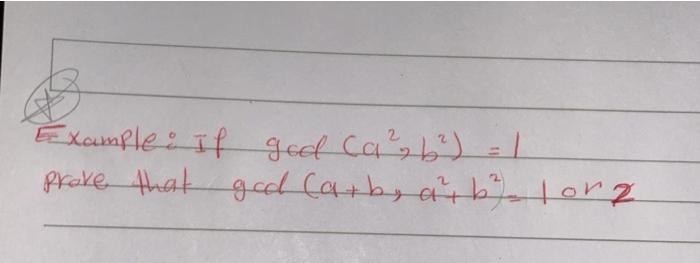 Example: If gcd (a², b²) = 1
prove that gcd (a+b, a²+b²) = 1 or 2